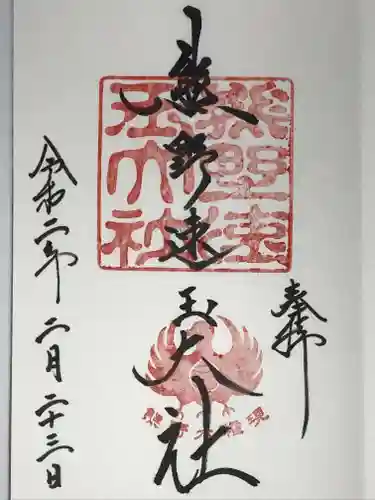 奉拝
熊野速玉大社
熊野速玉大社
令和二年二月二十三日